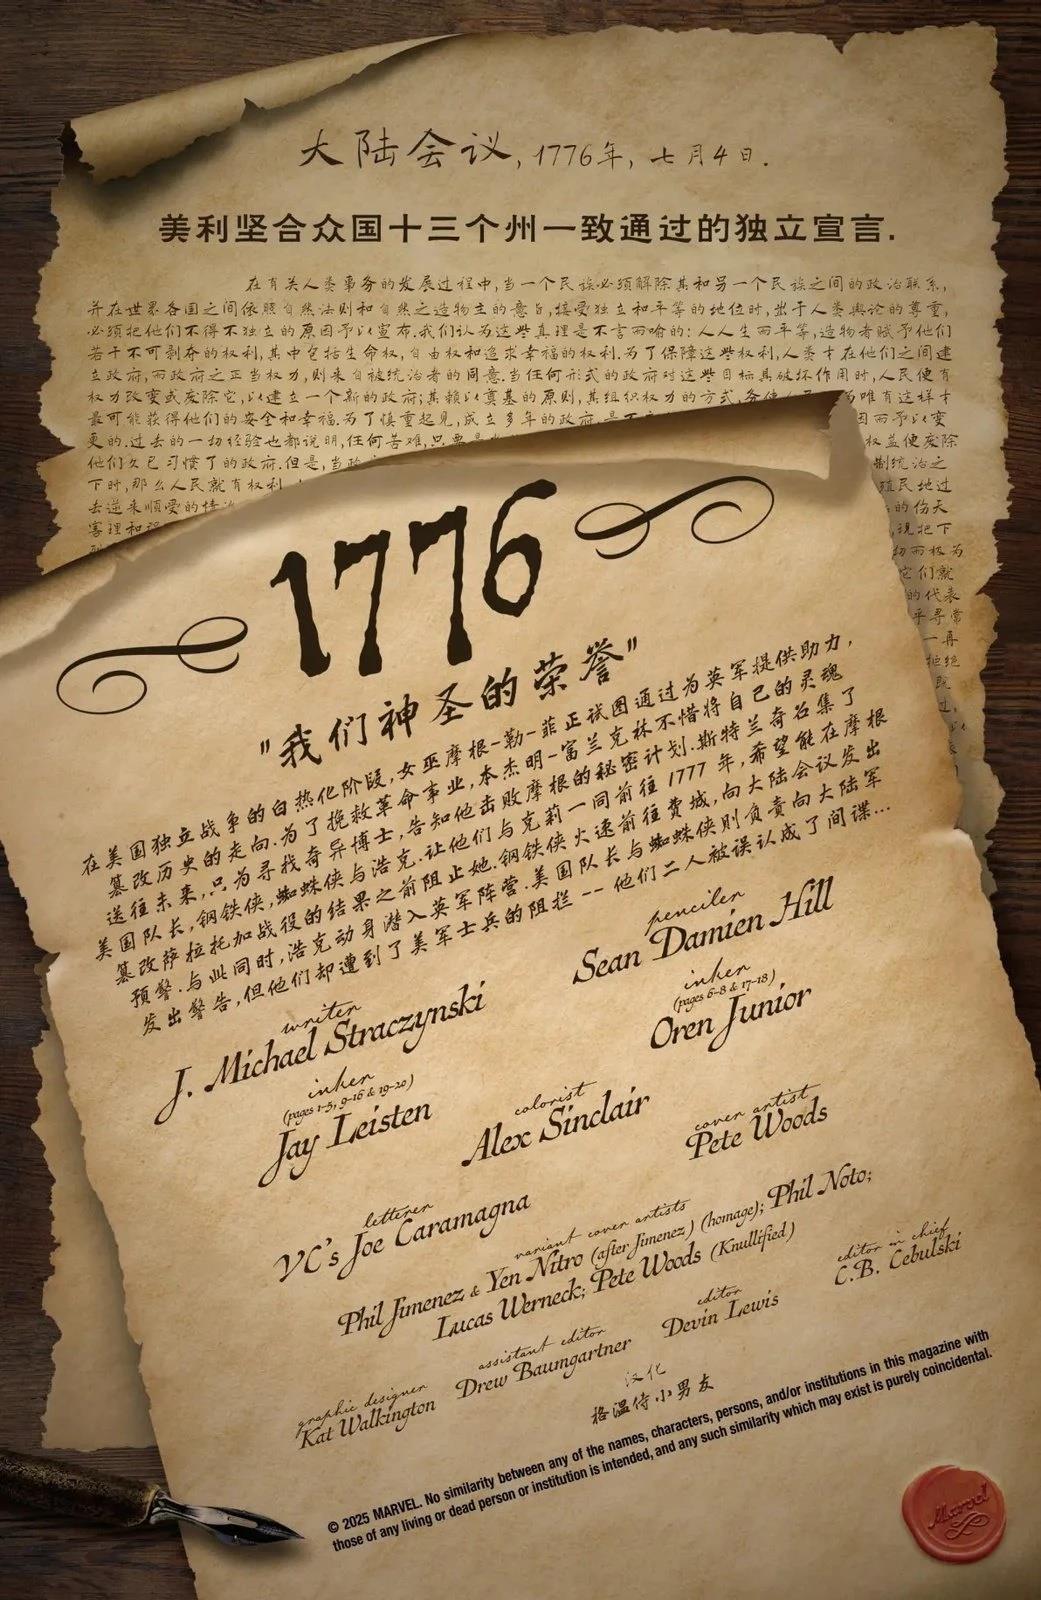 大陆会议, 1776年, 七月4日.
美利坚合众国十三个州一致通过的独立宣言.
在有关人类事务的发展过程中,当一个民族必须解除其和另一个民族之间的政治联系,
并在世界各国之间依照自然法则和自然之造物主的意旨,接受独立和平等的地位时,出于人类舆论的尊重,
必须把他们不得不独立的原因予以宣布.我们认为这些真理是不言而喻的:人人生而平等,造物者赋予他们
若干不可剥夺的权利,其中包括生命权,自由权和追求幸福的权利.为了保障这些权利,人类才在他们之间建
立政府,而政府之正当权力,则来自被统治者的同意.当任何形式的政府对这些目标具破坏作用时,人民便有
权力改变或废除它,以建立一个新的政府;其赖以奠基的原则,其组织权力的方式,务使人民 为唯有这样才
最可能获得他们的安全和幸福.为了慎重起见,成立多年的政府, 因而予以变
更的.过去的一切经验也都说明,任何苦难,只要 权益便废除
他们久已习惯了的政府.但是,当政 制统治之
下时,那么人民就有权利 殖民地过
去逆来顺受的情 的伤天
害理和 现把下
切而极为
它们就
的代表
乎寻常
一再
拒绝
既
过,
1776
"我们神圣的荣誉"
在美国独立战争的白热化阶段,女巫摩根-勒-菲正试图通过为英军提供助力,
篡改历史的走向.为了挽救革命事业,本杰明-富兰克林不惜将自己的灵魂
送往未来,只为寻找奇异博士,告知他击败摩根的秘密计划.斯特兰奇召集了
美国队长,钢铁侠,蜘蛛侠与浩克.让他们与克莉一同前往 1777 年,希望能在摩根
篡改萨拉托加战役的结果之前阻止她.钢铁侠火速前往费城,向大陆会议发出
预警.与此同时,浩克动身潜入英军阵营.美国队长与蜘蛛侠则负责向大陆军
发出警告,但他们却遭到了美军士兵的阻拦 -- 他们二人被误认成了间谍...
writer
J. Michael Straczynski
penciler
Sean Damien Hill
inker
(pages 1-5, 9-16 & 19-20)
Jay Leisten
inker
(pages 6-8 & 17-18)
Oren Junior
colorist
Alex Sinclair
cover artist
Pete Woods
letterer
VC's Joe Caramagna
variant cover artists
Phil Jimenez & Yen Nitro (after Jimenez) (homage); Phil Noto;
Lucas Werneck; Pete Woods (Knullified)
graphic designer
Kat Walkington
assistant editor
Drew Baumgartner
editor
Devin Lewis
editor in chief
C.B. Cebulski
汉化
格温侍小男友
© 2025 MARVEL. No similarity between any of the names, characters, persons, and/or institutions in this magazine with
those of any living or dead person or institution is intended, and any such similarity which may exist is purely coincidental.
Marvel